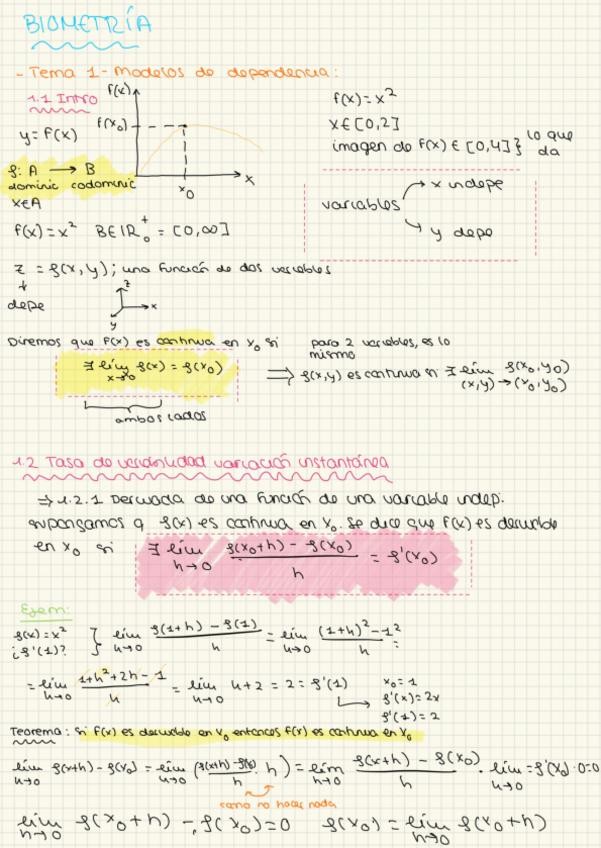 BIOMETRÍA
- Tema 1 - Modelos de dependencia:
1.1 Intro
y = f(x)
f(x)
f(x₀)
x₀
x
f(x) = x²
x ∈ [0,2]
imagen de f(x) ∈ [0,4] } lo que da
f: A → B
dominio codominio
x ∈ A
variables → x indepe
↘ y depe
f(x) = x² B ∈ ℝ₀⁺ = [0,∞]
z = f(x,y); una función de dos variables
↓
depe
z
x
y
Diremos que f(x) es continua en x₀ si
∃ lím f(x) = f(x₀)
ambos lados
para 2 variables, es lo mismo
⇒ f(x,y) es continua si ∃ lím f(x₀,y₀)
(x,y) → (x₀,y₀)
1.2 Tasa de variación instantánea
⇒ 1.2.1 Derivada de una función de una variable indep.
supongamos q f(x) es continua en x₀. Se dice que f(x) es derivable
en x₀ si ∃ lím h→0 (f(x₀+h) - f(x₀))/h = f'(x₀)
Ejem:
f(x) = x²
¿f'(1)?
} lím h→0 (f(1+h) - f(1))/h = lím h→0 ((1+h)² - 1²)/h =
= lím h→0 (1+h²+2h-1)/h = lím h→0 h+2 = 2 = f'(1)
x₀ = 1
f'(x) = 2x
f'(1) = 2
Teorema: si f(x) es derivable en x₀ entonces f(x) es continua en x₀
lím h→0 f(x+h) - f(x₀) = lím h→0 ((f(x+h) - f(x₀))/h · h) = lím h→0 (f(x+h) - f(x₀))/h · lím h→0 = f'(x₀)·0=0
como no hacer nada
lím h→0 f(x₀+h) - f(x₀) = 0 f(x₀) = lím h→0 f(x₀+h)